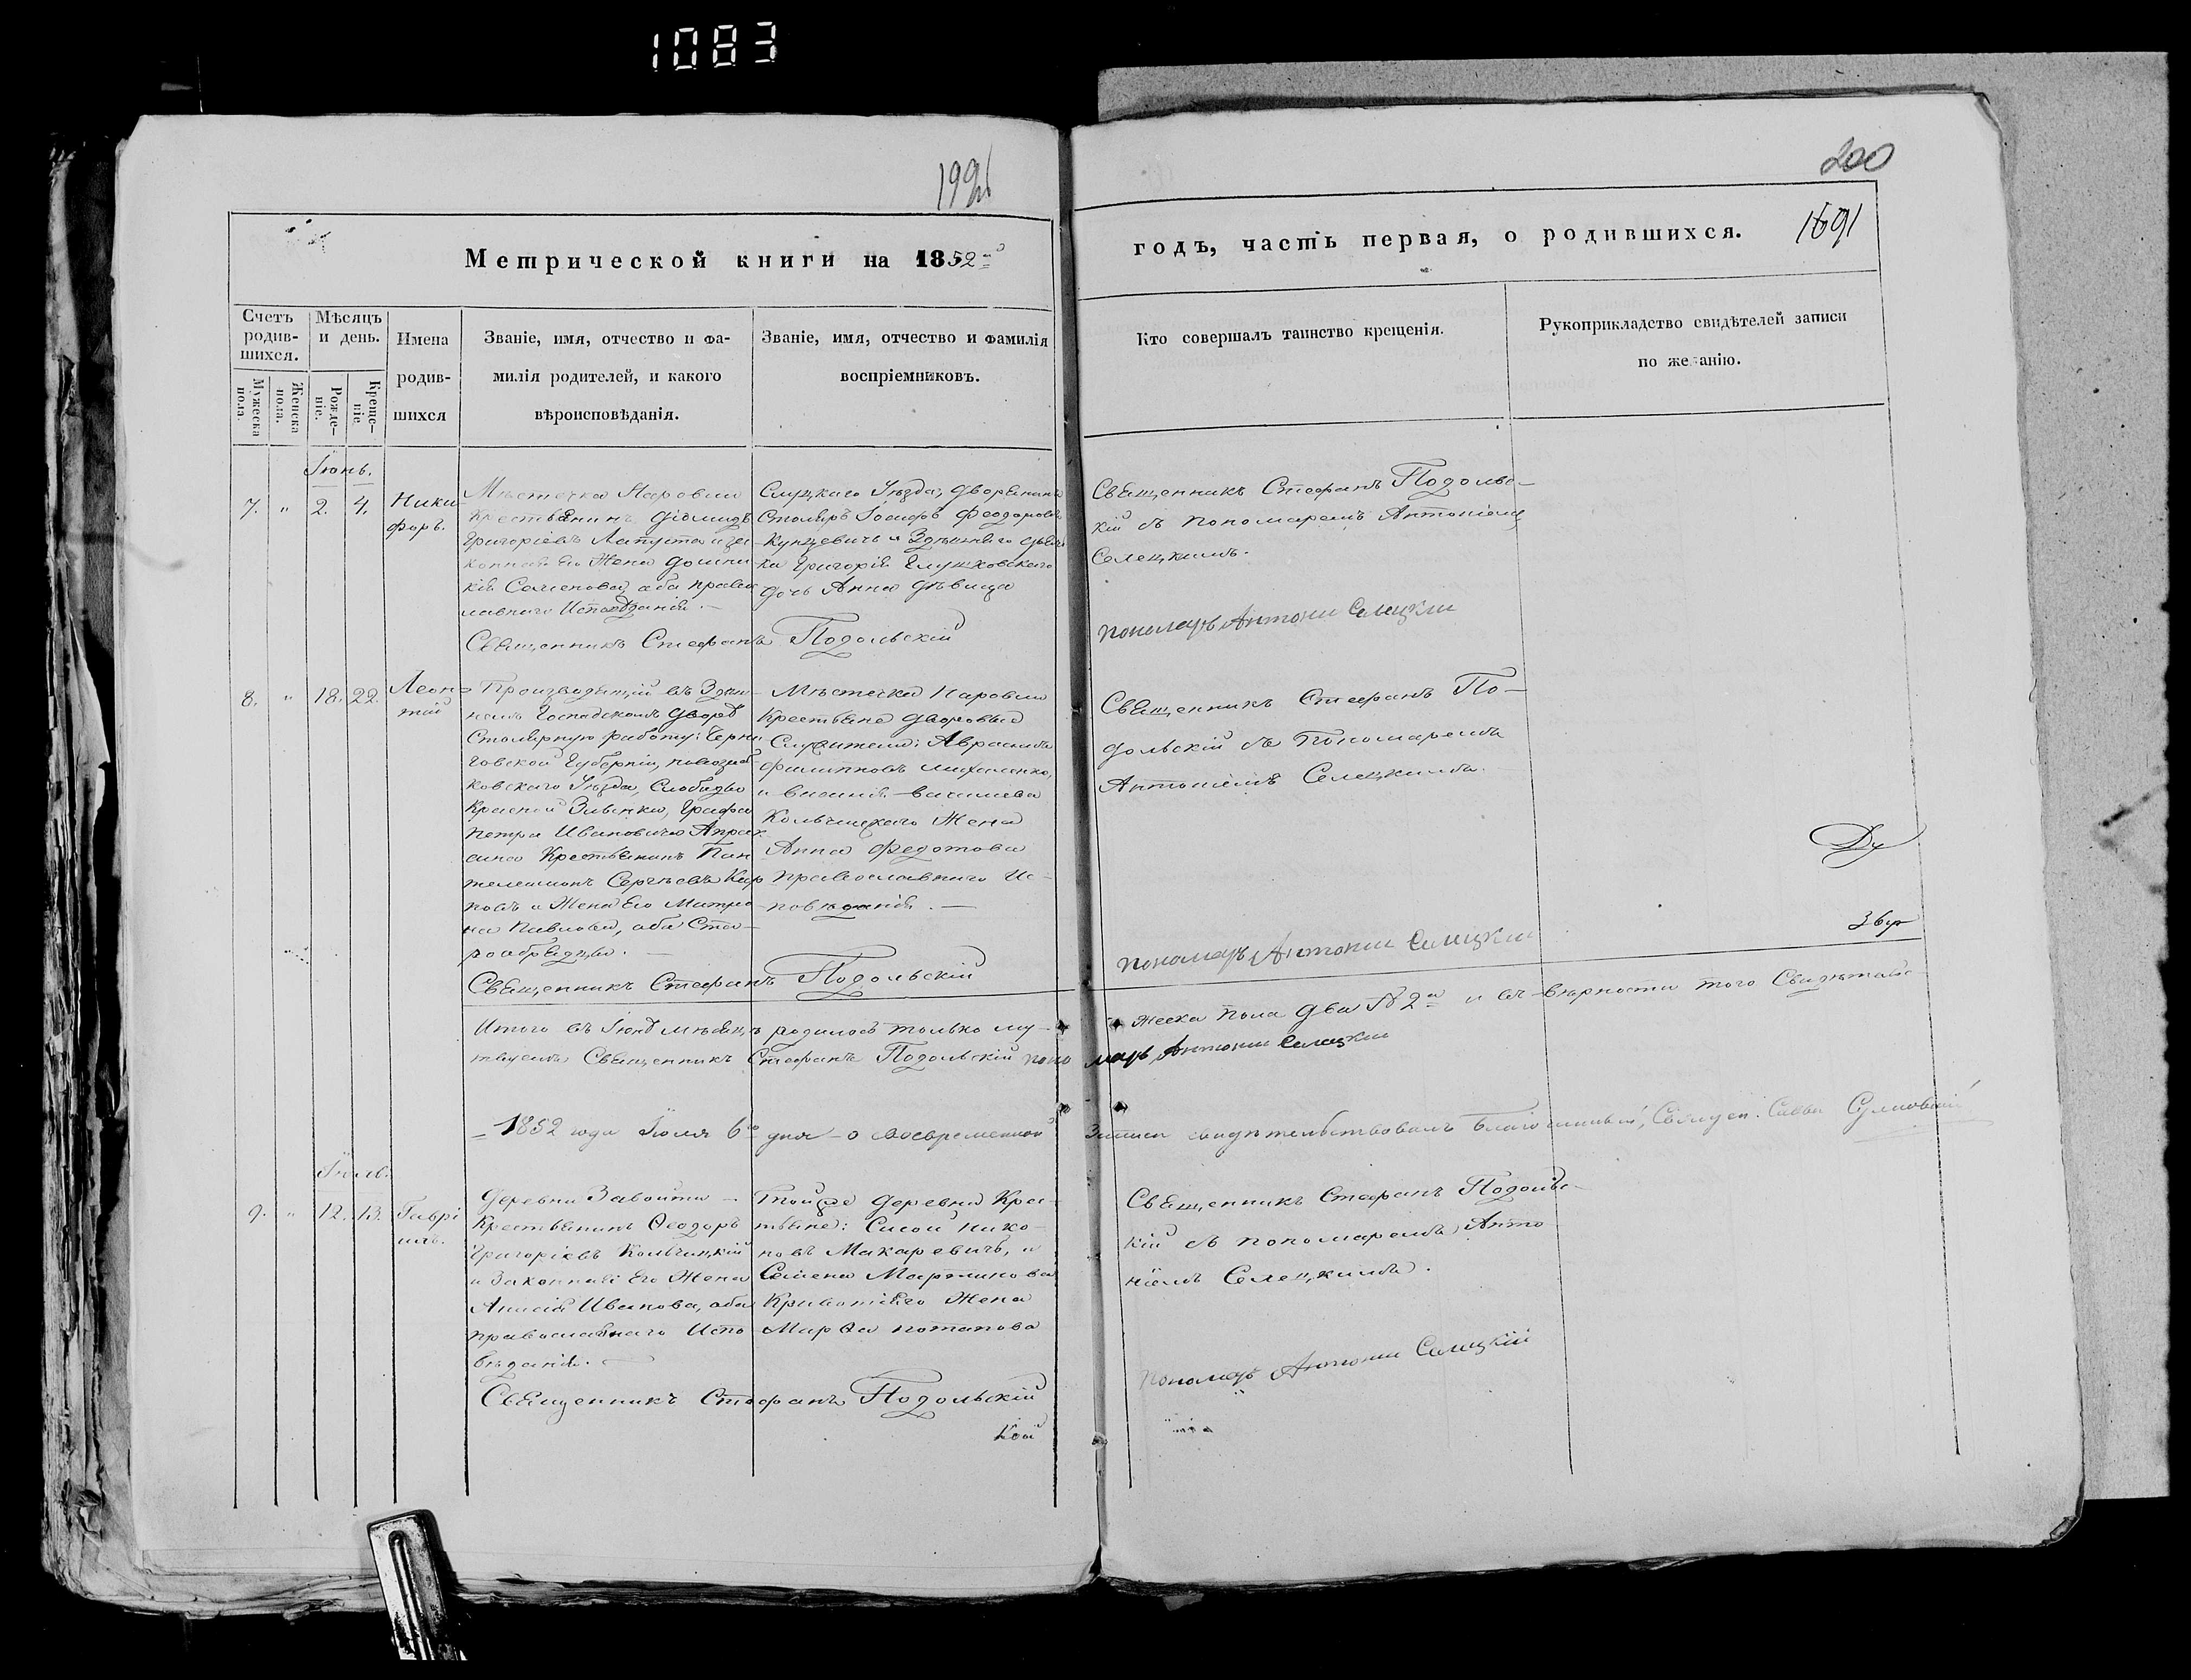 1083
199об
200
1691
Метрической книги на 1852й
годъ, часть первая, о родившихся.
Счетъ родив-
шихся.
Мѣсяцъ
и день.
Имена
родив-
шихся
Званіе, имя, отчество и фа-
милія родителей, и какого
вѣроисповѣданія.
Званіе, имя, отчество и фамилія
воспріемниковъ.
Кто совершалъ таинство крещенія.
Рукоприкладство свидѣтелей записи
по желанію.
Мужеска
пола.
Женска
пола.
Рожде-
ніе.
Креще-
ніе.
Іюнь.
7. " 2. 4.
Ники-
форъ.
Мѣстечка Наровли
Крестьянинъ
Григоріевъ Лапута и за-
конная его Жена Домни-
кія Семенова, оба право-
славнаго Исповѣданія. —
Священникъ Стефанъ Подольскій
Слуцкаго Уѣзда, дворянинъ
Столяръ Іосифъ Феодоровъ
Кунцевичъ и Здѣшняго
Григорія Глушковскаго
дочь Анна дѣвица
Священникъ Стефанъ Подоль-
кій съ пономаремъ Антоніемъ
Селецкимъ.
пономарь Антоніи Селецкіи
8. " 18. 22.
Леон-
тій
Производящій въ Здѣш-
немъ Господскомъ дворѣ
Столярную работу: Черни-
говской Губерніи, новозыб-
ковскаго Уѣзда, Слободы
Красной Злынки, Графа
Петра Ивановича Апрак-
сина Крестьянинъ Пан-
телеимонъ Сергѣевъ Кар-
повъ и Жена Его Матро-
на Павлова, оба Ста-
рообрядцы. —
Священникъ Стефанъ Подольскій
Мѣстечка Наровли
Крестьяне дворовые
Служители: Аврамъ
Филипповъ Михаленко,
и Василева
Кольчицкаго Жена
Анна Федотова
Православнаго Ис-
повѣданія. —
Священникъ Стефанъ По-
дольскій съ Пономаремъ
Антоніемъ Селецкимъ.
пономарь Антоніи Селецкіи
Итого въ Іюнѣ мѣсяцѣ родилось только му-
жеска пола два № 2й и въ вѣрности того Свидѣтель-
ствуемъ Священникъ Стефанъ Подольскій поно
марь Антоніи Селецкіи
— 1852 года Іюля 6го дня — о своевременной
Записи свидѣтельствовалъ Благочинный, Священ. Савва
Іюль.
9. " 12. 13.
Гаврі-
илъ.
Деревни Завойти —
Крестьянинъ Ѳеодоръ
Григоріевъ Кольчицкій
и Законная Его Жена
Анисія Иванова, оба
православнаго Испо-
вѣданія. —
Священникъ Стефанъ Подольскій
Тойже деревни Крес-
тьяне: Сисой Нико-
новъ Макаревичъ, и
Семена Мартинова
Жена
Марѳа потапова
Священникъ Стефанъ Подоль-
кій съ пономаремъ Анто-
ніемъ Селецкимъ.
пономарь Антоніи Селецкій